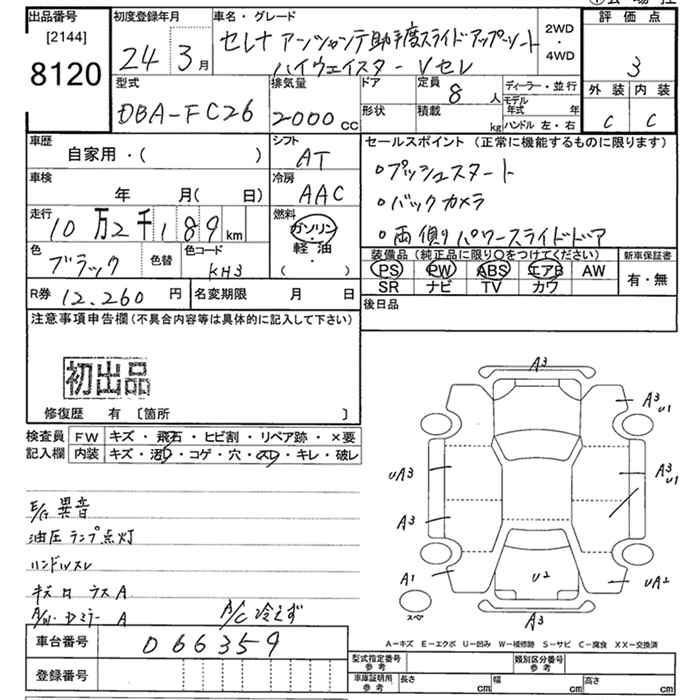 出品番号
[2144]
8120
初度登録年月
24年3月
車名・グレード
セレナ アンシャンテ助手席スライドアップシート
ハイウェイスター Vセレ
2WD
・
4WD
評価点
3
外装 内装
C C
型式
DBA-FC26
排気量
2000cc
ドア
形状
定員
8人
積載
kg
ディーラー・並行
モデル
年式 年
ハンドル 左・右
車歴
自家用・( )
シフト
AT
車検
年 月( 日)
冷房
AAC
走行
10万2千189km
燃料
ガソリン
軽・油
( )
色
ブラック
色替
色コード
KH3
R券 12,260 円
名変期限 月 日
セールスポイント(正常に機能するものに限ります)
・プッシュスタート
・バックカメラ
・両側パワースライドドア
装備品(純正品に限り○をつけてください)
PS PW ABS エアB AW
SR ナビ TV カワ
新車保証書
有・無
後日品
注意事項申告欄(不具合内容等は具体的に記入して下さい)
初出品
修復歴 有 [箇所 ]
検査員
記入欄
FW キズ・飛石・ヒビ割・リペア跡・×要
内装 キズ・汚れ・コゲ・穴・スレ・キレ・破レ
E/G 異音
油圧ランプ点灯
ハンドルスレ
A
A
A/C 冷えず
車台番号 066359
登録番号
A3
A3
U1
UA3
A3
U1
A3
A1
U2
UA2
A3
スペア
A-キズ E-エクボ U-凹み W-補修跡 S-サビ C-腐食 XX-交換済
型式指定番号
参考
類別区分番号
参考
車庫証明用
参考
長さ cm
幅 cm
高さ cm